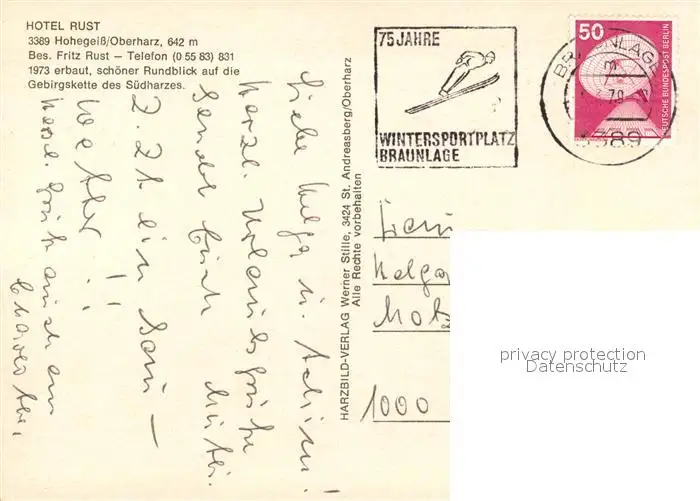 HOTEL RUST
3389 Hohegeiß/Oberharz, 642 m
Bes. Fritz Rust – Telefon (0 55 83) 831
1973 erbaut, schöner Rundblick auf die
Gebirgskette des Südharzes.
Liebe Helga u. Achim!
Herzl. Urlaubsgrüße
sendet Euch Mutti.
Z. Zt ein Sau –
Wetter!!
Herzl. Grüße auch an
HARZBILD-VERLAG Werner Stille, 3424 St. Andreasberg/Oberharz
Alle Rechte vorbehalten
75 JAHRE
WINTERSPORTPLATZ
BRAUNLAGE
50
DEUTSCHE BUNDESPOST BERLIN
BRAUNLAGE
3389
Helga
1000
privacy protection
Datenschutz